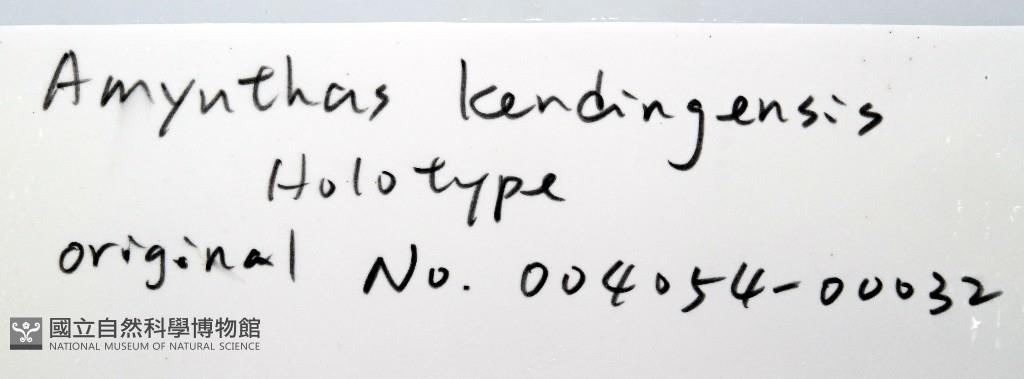 Amynthas kendingensis
Holotype
original No. 004054-00032
國立自然科學博物館
NATIONAL MUSEUM OF NATURAL SCIENCE